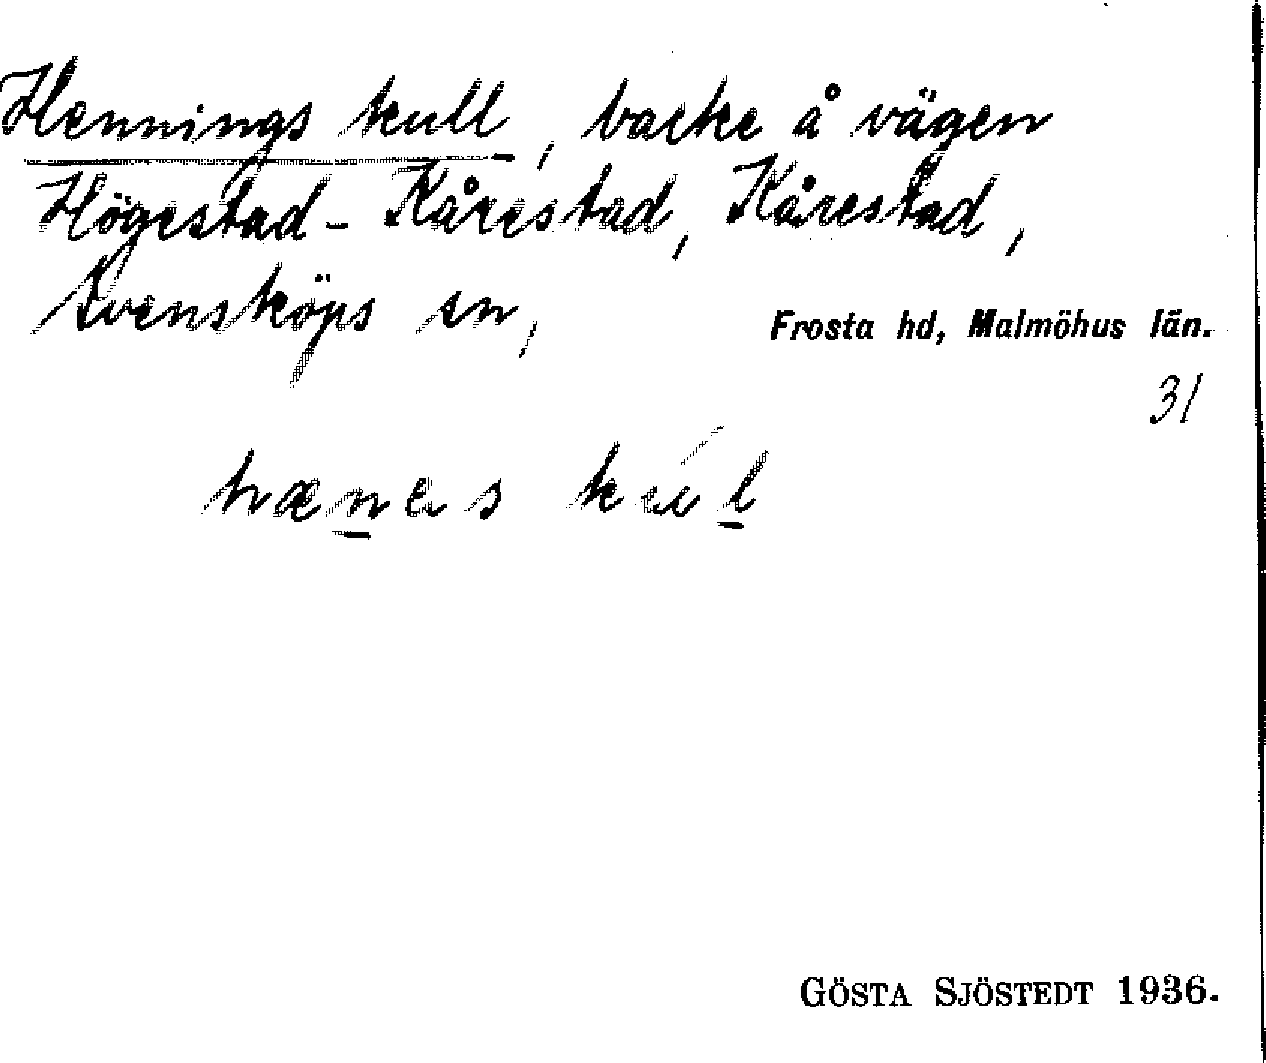 Hennings kull, backe å vägen
Högestad - Kårestad, Kårestad,
Svensköps sn,
Frosta hd, Malmöhus län.
31
hænes kúl
GÖSTA SJÖSTEDT 1936.